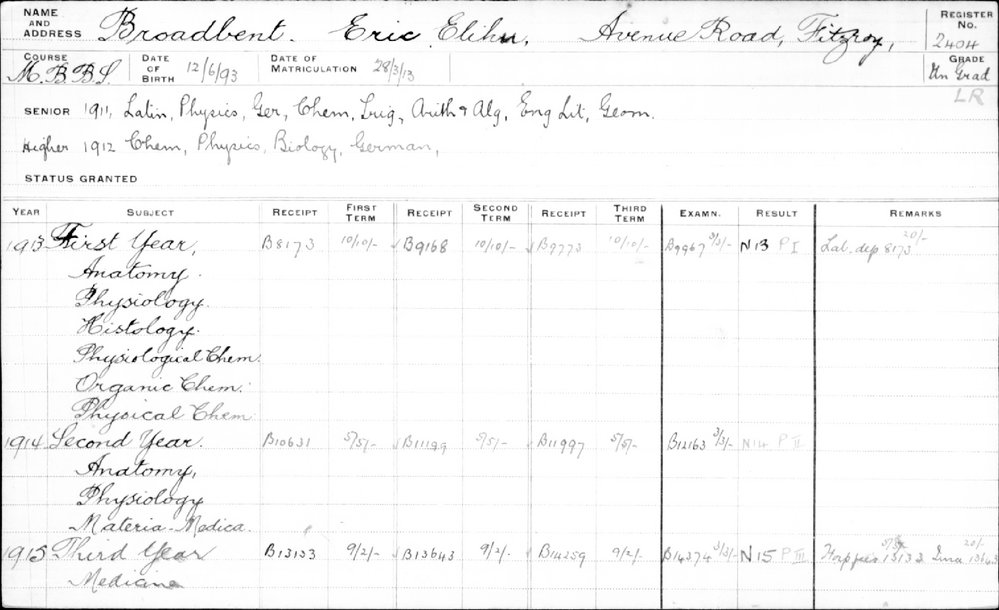 NAME AND ADDRESS Broadbent. Eric Elihu, Avenue Road, Fitzroy, REGISTER No. 2404
COURSE M.B.B.S. DATE OF BIRTH 12/6/93 DATE OF MATRICULATION 28/3/13 GRADE Un Grad
LR
SENIOR 1911, Latin, Physics, Ger, Chem, Trig, Arith & Alg, Eng Lit, Geom.
Higher 1912 Chem, Physics, Biology, German,
STATUS GRANTED
YEAR SUBJECT RECEIPT FIRST TERM RECEIPT SECOND TERM RECEIPT THIRD TERM EXAMN. RESULT REMARKS
1913 First Year, B8173 10/10/- B9168 10/10/- B9773 10/10/- B9967 3/3/- N13 P I Lab. dep 8173 20/-
Anatomy.
Physiology.
Histology.
Physiological Chem.
Organic Chem.
Physical Chem
1914 Second Year. B10631 5/5/- B11199 5/5/- B11997 5/5/- B12163 3/3/- N14 P II
Anatomy,
Physiology
Materia-Medica.
1915 Third Year B13133 9/2/- B13643 9/2/- B14259 9/2/- B14374 3/3/- N15 P III 13133 20/- 13643
Medicine